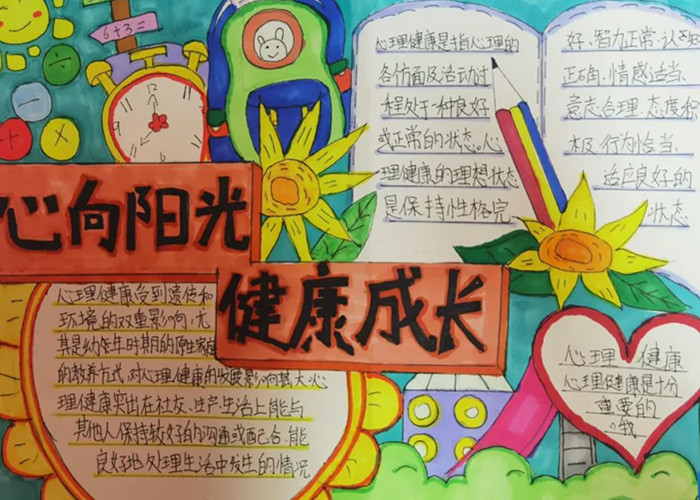 6+3=
心向阳光
健康成长
心理健康是指心理的
各个方面及活动过
程处于一种良好
或正常的状态。心
理健康的理想状态
是保持性格完
好、智力正常、认知
正确、情感适当、
意志合理、态度积
极、行为恰当、
适应良好的
状态
心理健康受到遗传和
环境的双重影响,尤
其是幼年时期的原生家庭
的教养方式,对心理健康的发展影响甚大。心
理健康突出在社交、生产、生活上能与
其他人保持较好的沟通或配合,能
良好地处理生活中发生的情况
心理健康
心理健康是十分
重要的
哦